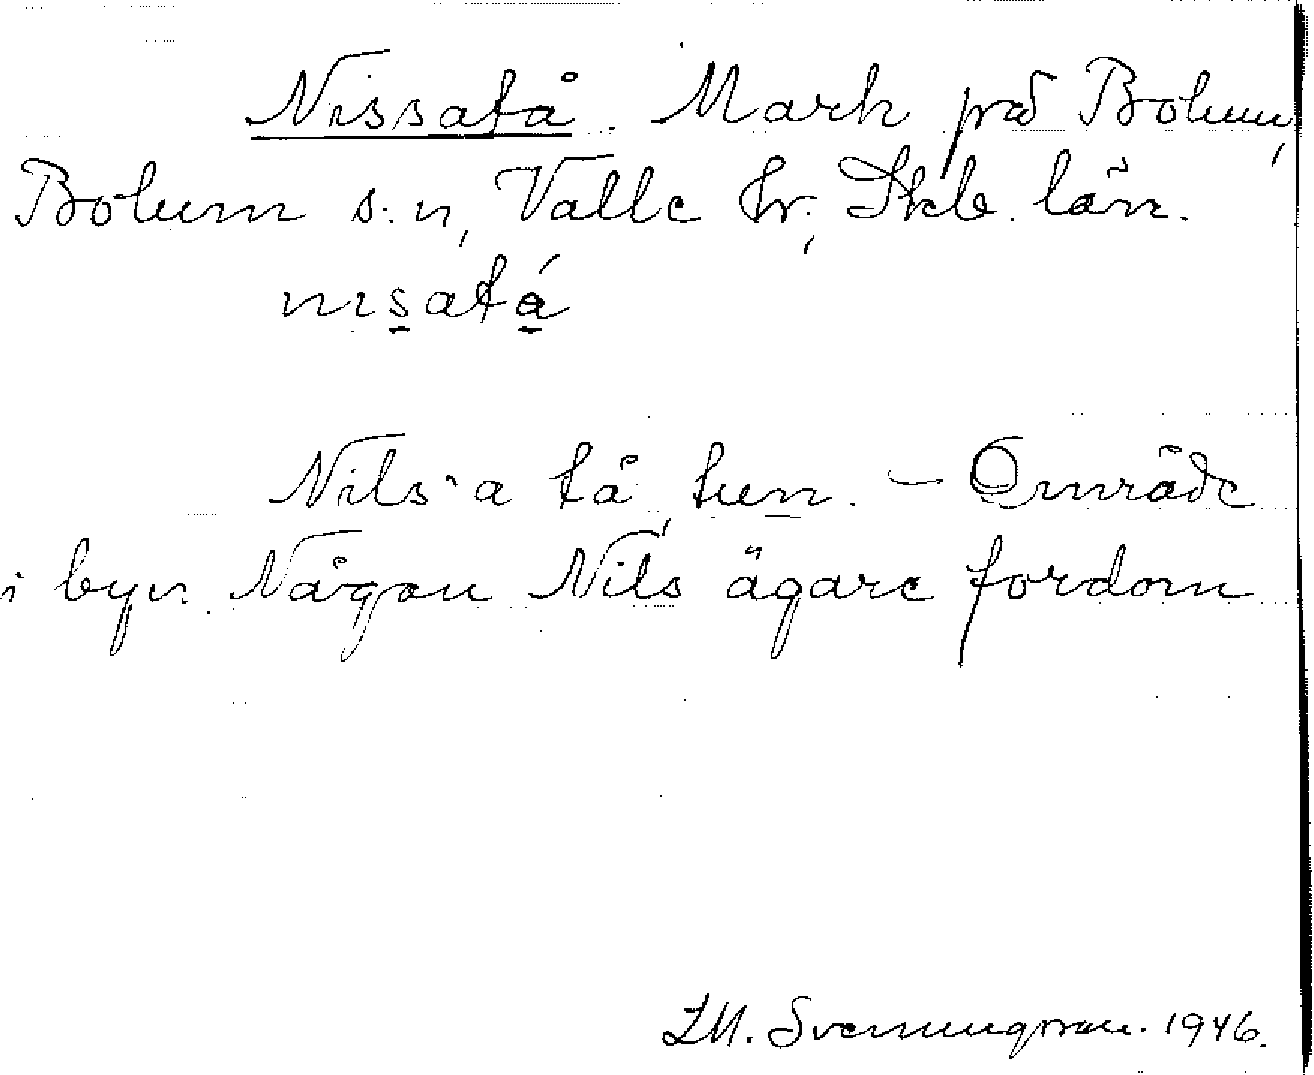 Nissatå. Mark på Bolum,
Bolum s:n, Valle hr., Skb. län.
nisatá
Nils'a tå, tun. – Område
i byn. Någon Nils ägare fordom
Svenungsson. 1946.